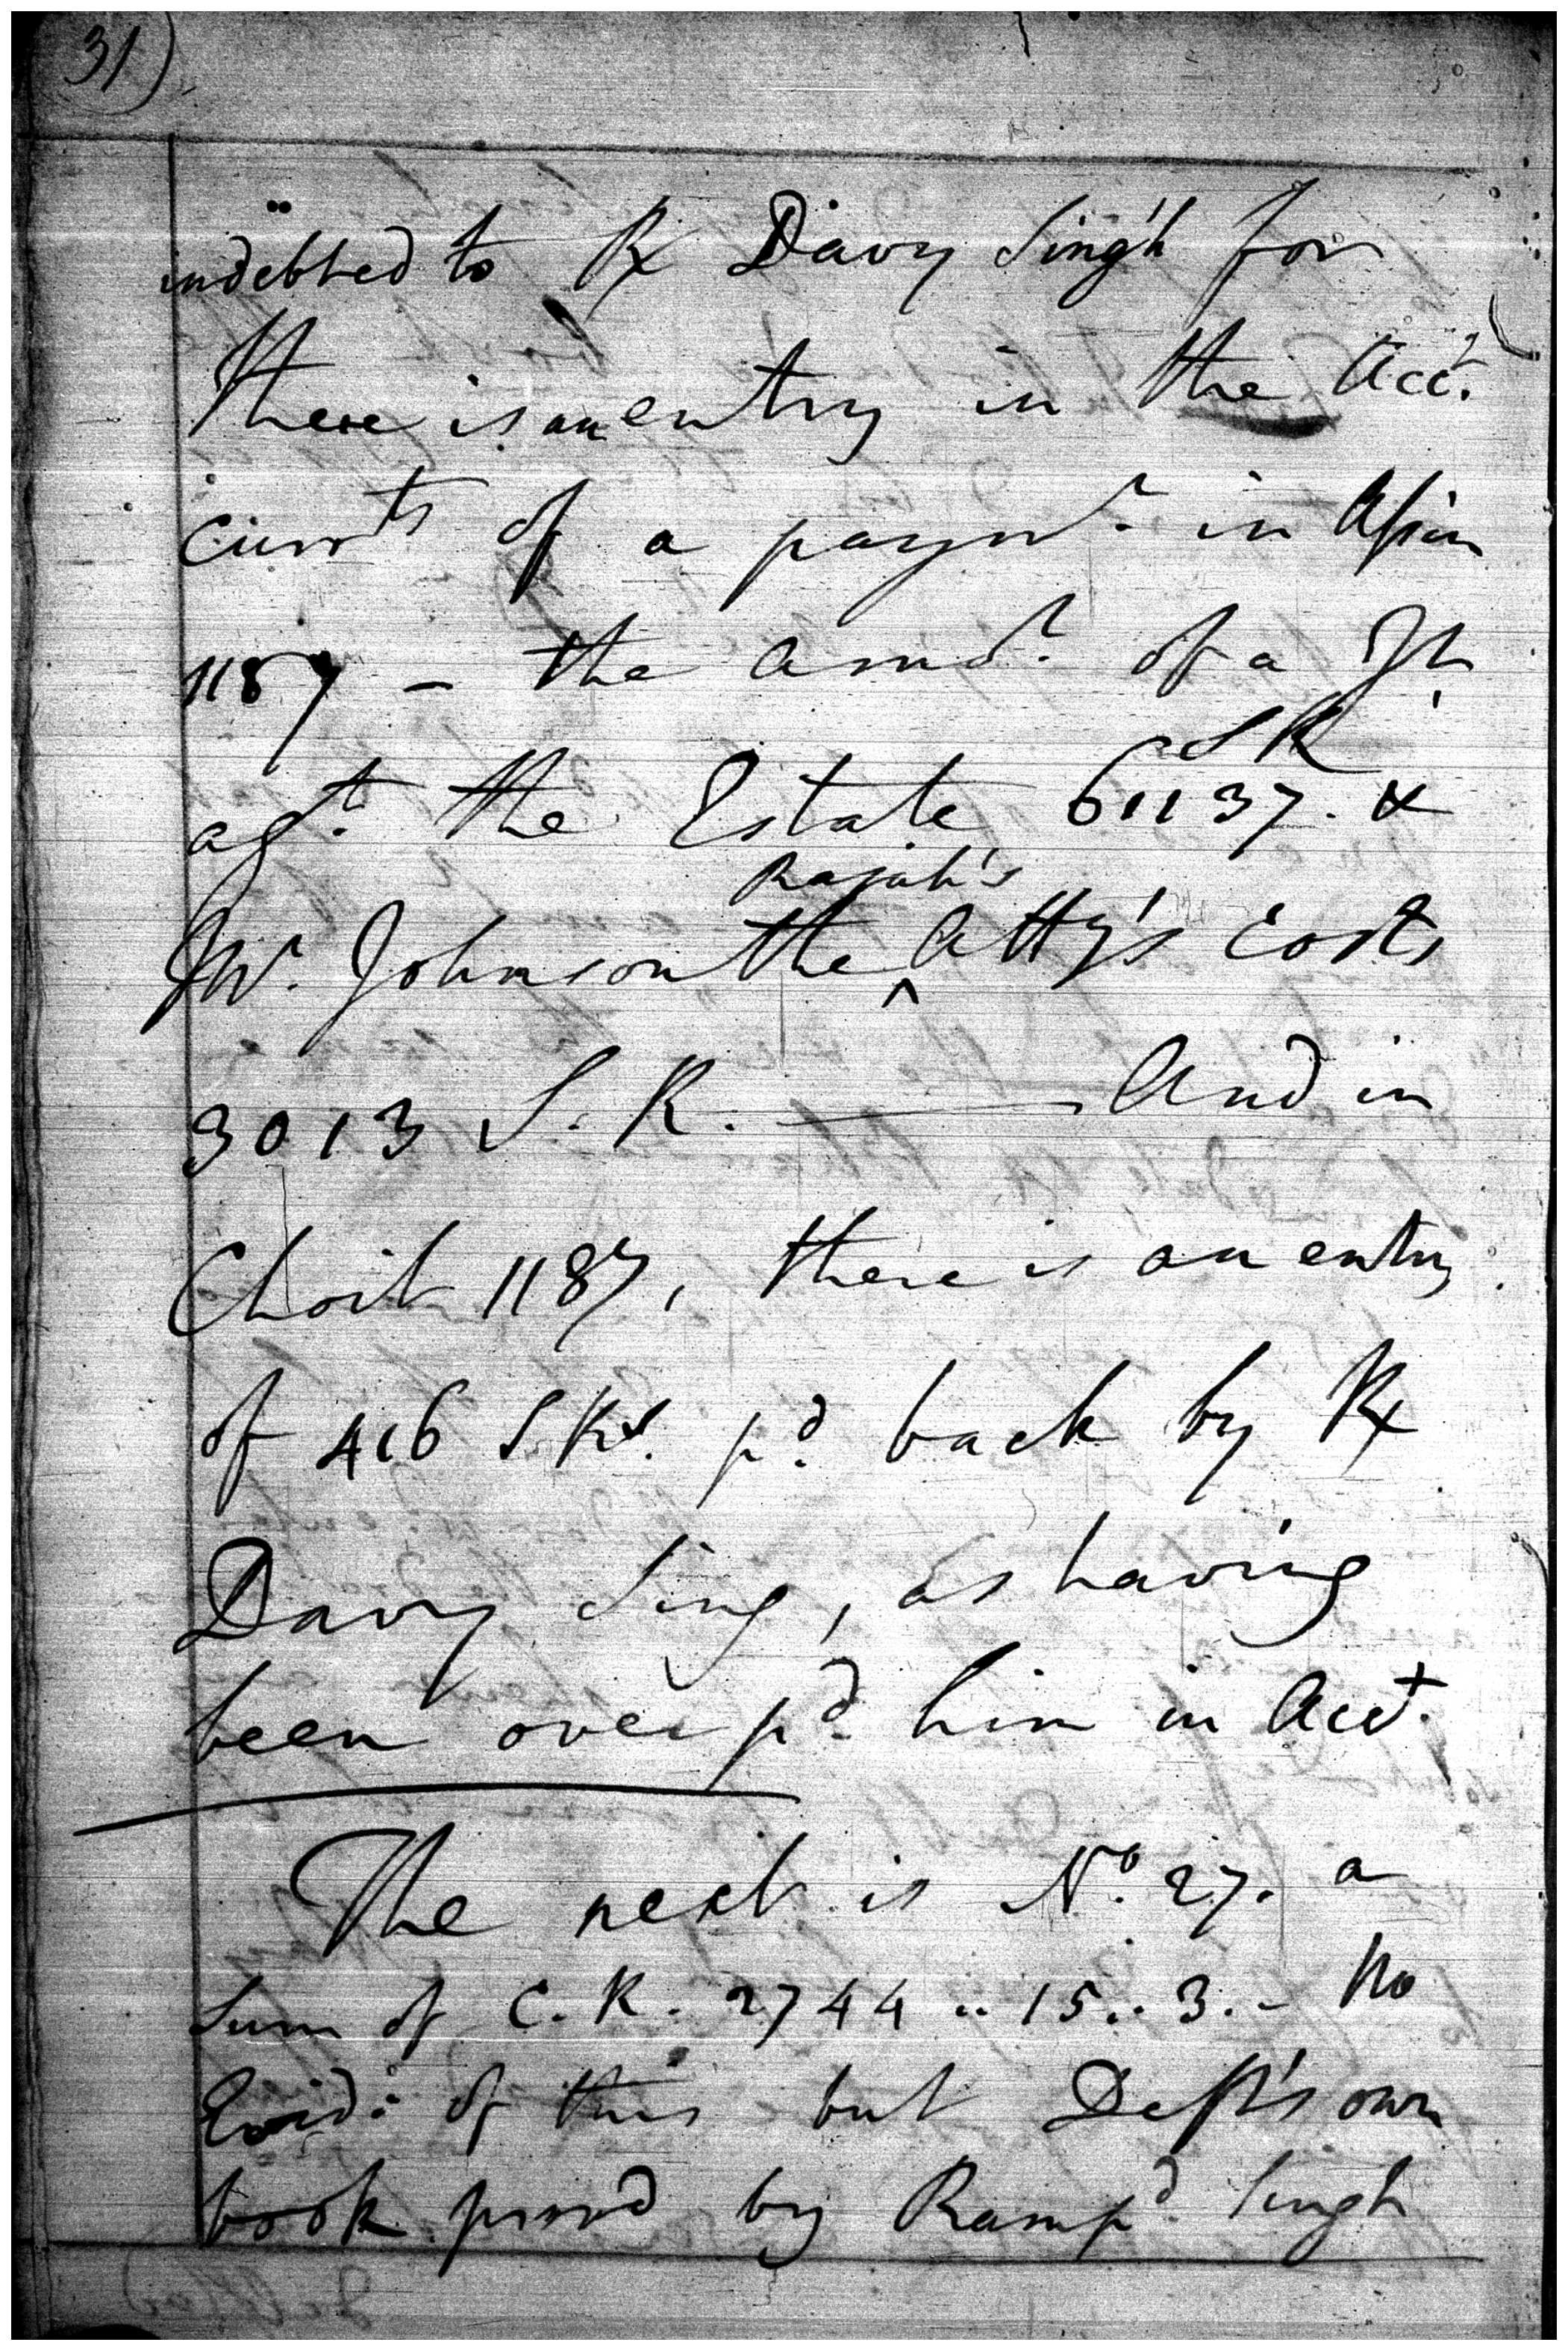 31)
indebted to Rx Davy Singh for
There is an entry in the Acct.
Curr.ts of a paymt. in Assin
1187 - the amot. of a Jt.
SR
agt. the Estate 61137. &
Rajah's
Mr. Johnson the ^ Atty's Costs
3013 S. R. — And in
Choit 1187, there is an entry
of 416 S Rs. pd. back by Rx
Davy Sing, as having
been over pd. him in Acct.
The next is No. 27. a
Sum of C. R. 2744 .. 15 .. 3. - No
Evid: of this but Deft's own
book provd by Rampd. Singh